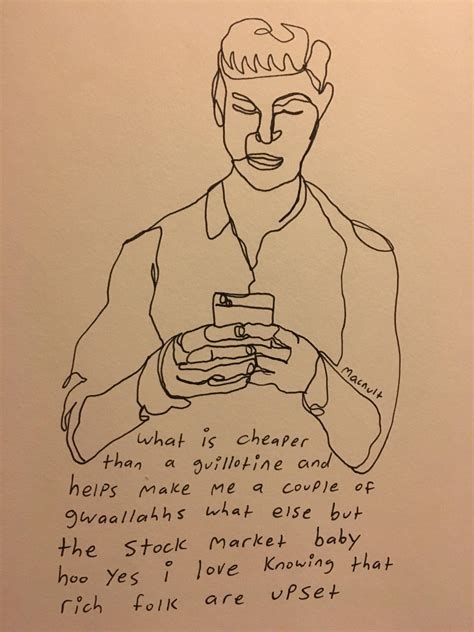 macnult
what is cheaper
than a guillotine and
helps make me a couple of
gwaallahhs what else but
the stock market baby
hoo yes i love knowing that
rich folk are upset